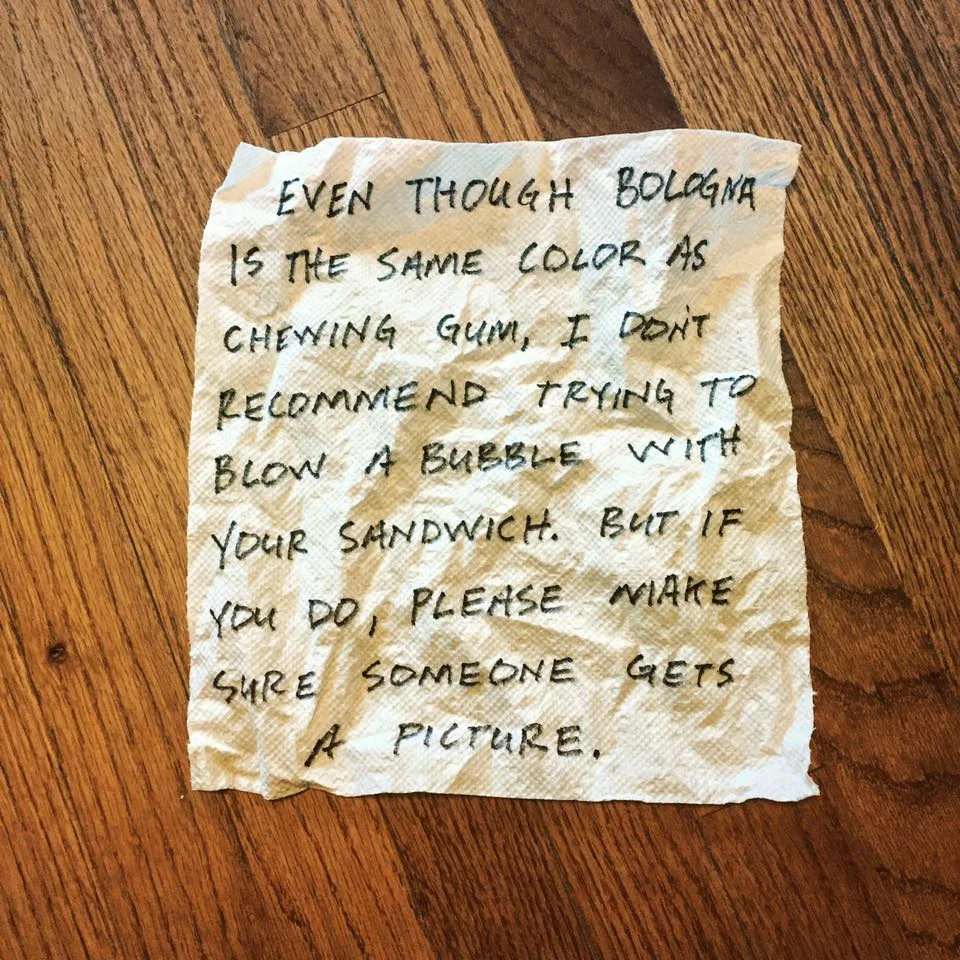 EVEN THOUGH BOLOGNA
IS THE SAME COLOR AS
CHEWING GUM, I DON'T
RECOMMEND TRYING TO
BLOW A BUBBLE WITH
YOUR SANDWICH. BUT IF
YOU DO, PLEASE MAKE
SURE SOMEONE GETS
A PICTURE.